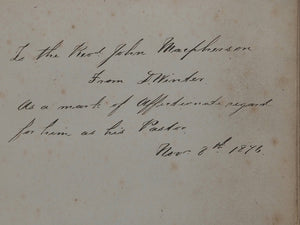 To the Revd John Macpherson
From T. Winter
As a mark of Affectionate regard
for him as his Pastor
Nov 8th 1876